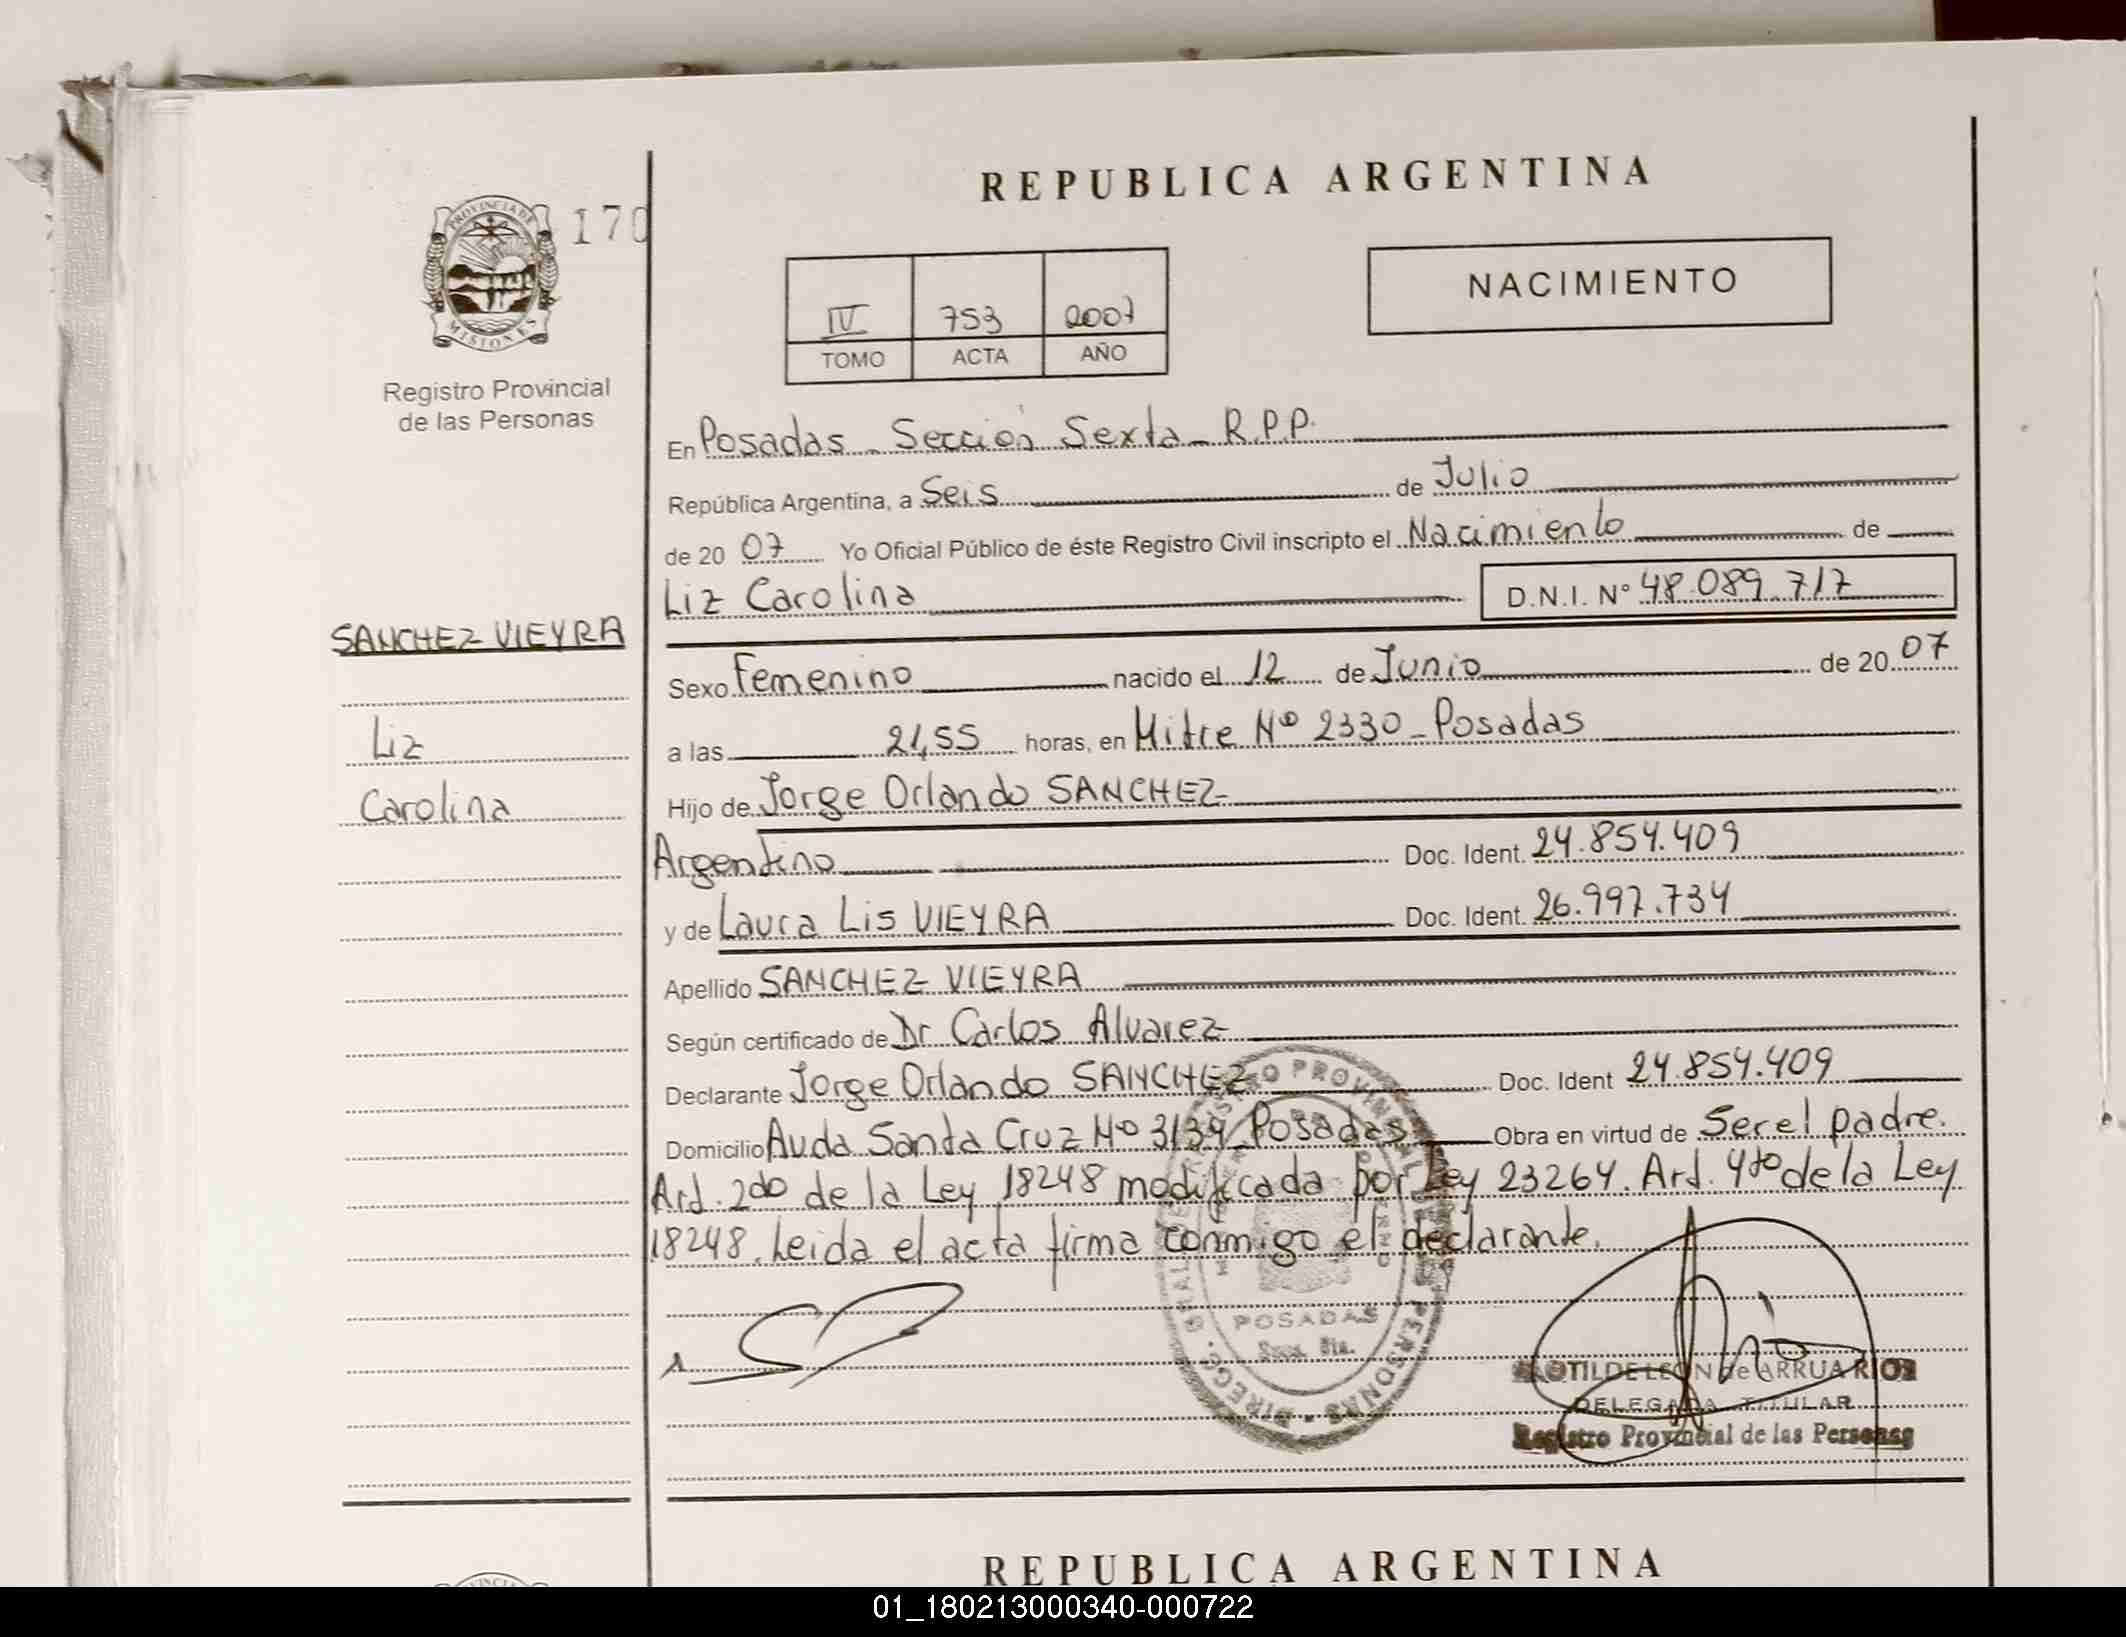 REPUBLICA ARGENTINA
PROVINCIA DE
MISIONES
170
Registro Provincial
de las Personas
IV 753 2007
TOMO ACTA AÑO
NACIMIENTO
En Posadas - Sección Sexta - R.P.P.
República Argentina, a Seis de Julio
de 20 07 Yo Oficial Público de éste Registro Civil inscripto el Nacimiento de
Liz Carolina D.N.I. Nº 48.089.717
SANCHEZ VIEYRA
Liz
Carolina
Sexo Femenino nacido el 12 de Junio de 20 07
a las 21,55 horas, en Mitre Nº 2330 - Posadas
Hijo de Jorge Orlando SANCHEZ
Argentino Doc. Ident. 24.854.409
y de Laura Lis VIEYRA Doc. Ident. 26.997.734
Apellido SANCHEZ VIEYRA
Según certificado de Dr Carlos Alvarez
Declarante Jorge Orlando SANCHEZ Doc. Ident 24.854.409
Domicilio Avda Santa Cruz Nº 3139 Posadas Obra en virtud de Ser el padre.
Art. 2do de la Ley 18248 modificada por Ley 23264. Art. 4to de la Ley
18248. Leida el acta firma conmigo el declarante.
POSADAS
Secc. 6ta.
CLOTILDE LEON de ARRUA RIOS
DELEGADA TITULAR
Registro Provincial de las Personas
REPUBLICA ARGENTINA
01_180213000340-000722